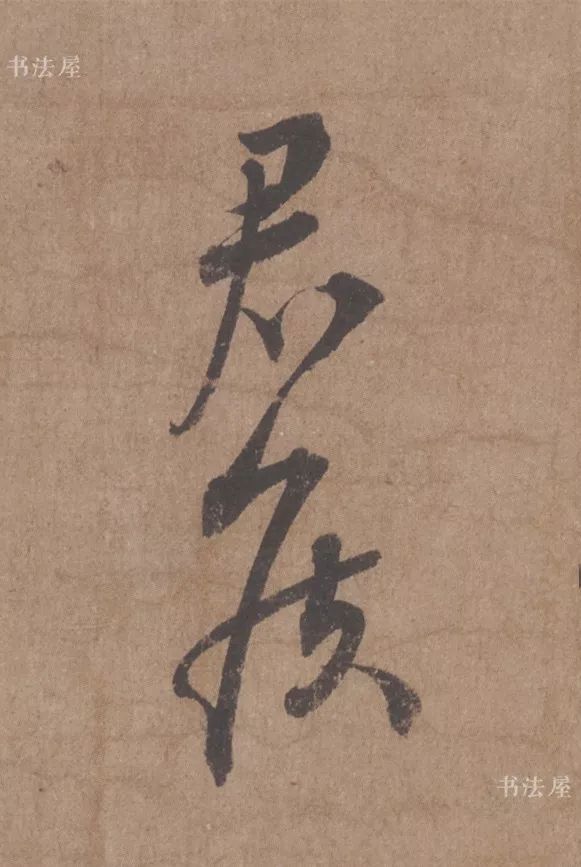 书法屋
君疾
书法屋